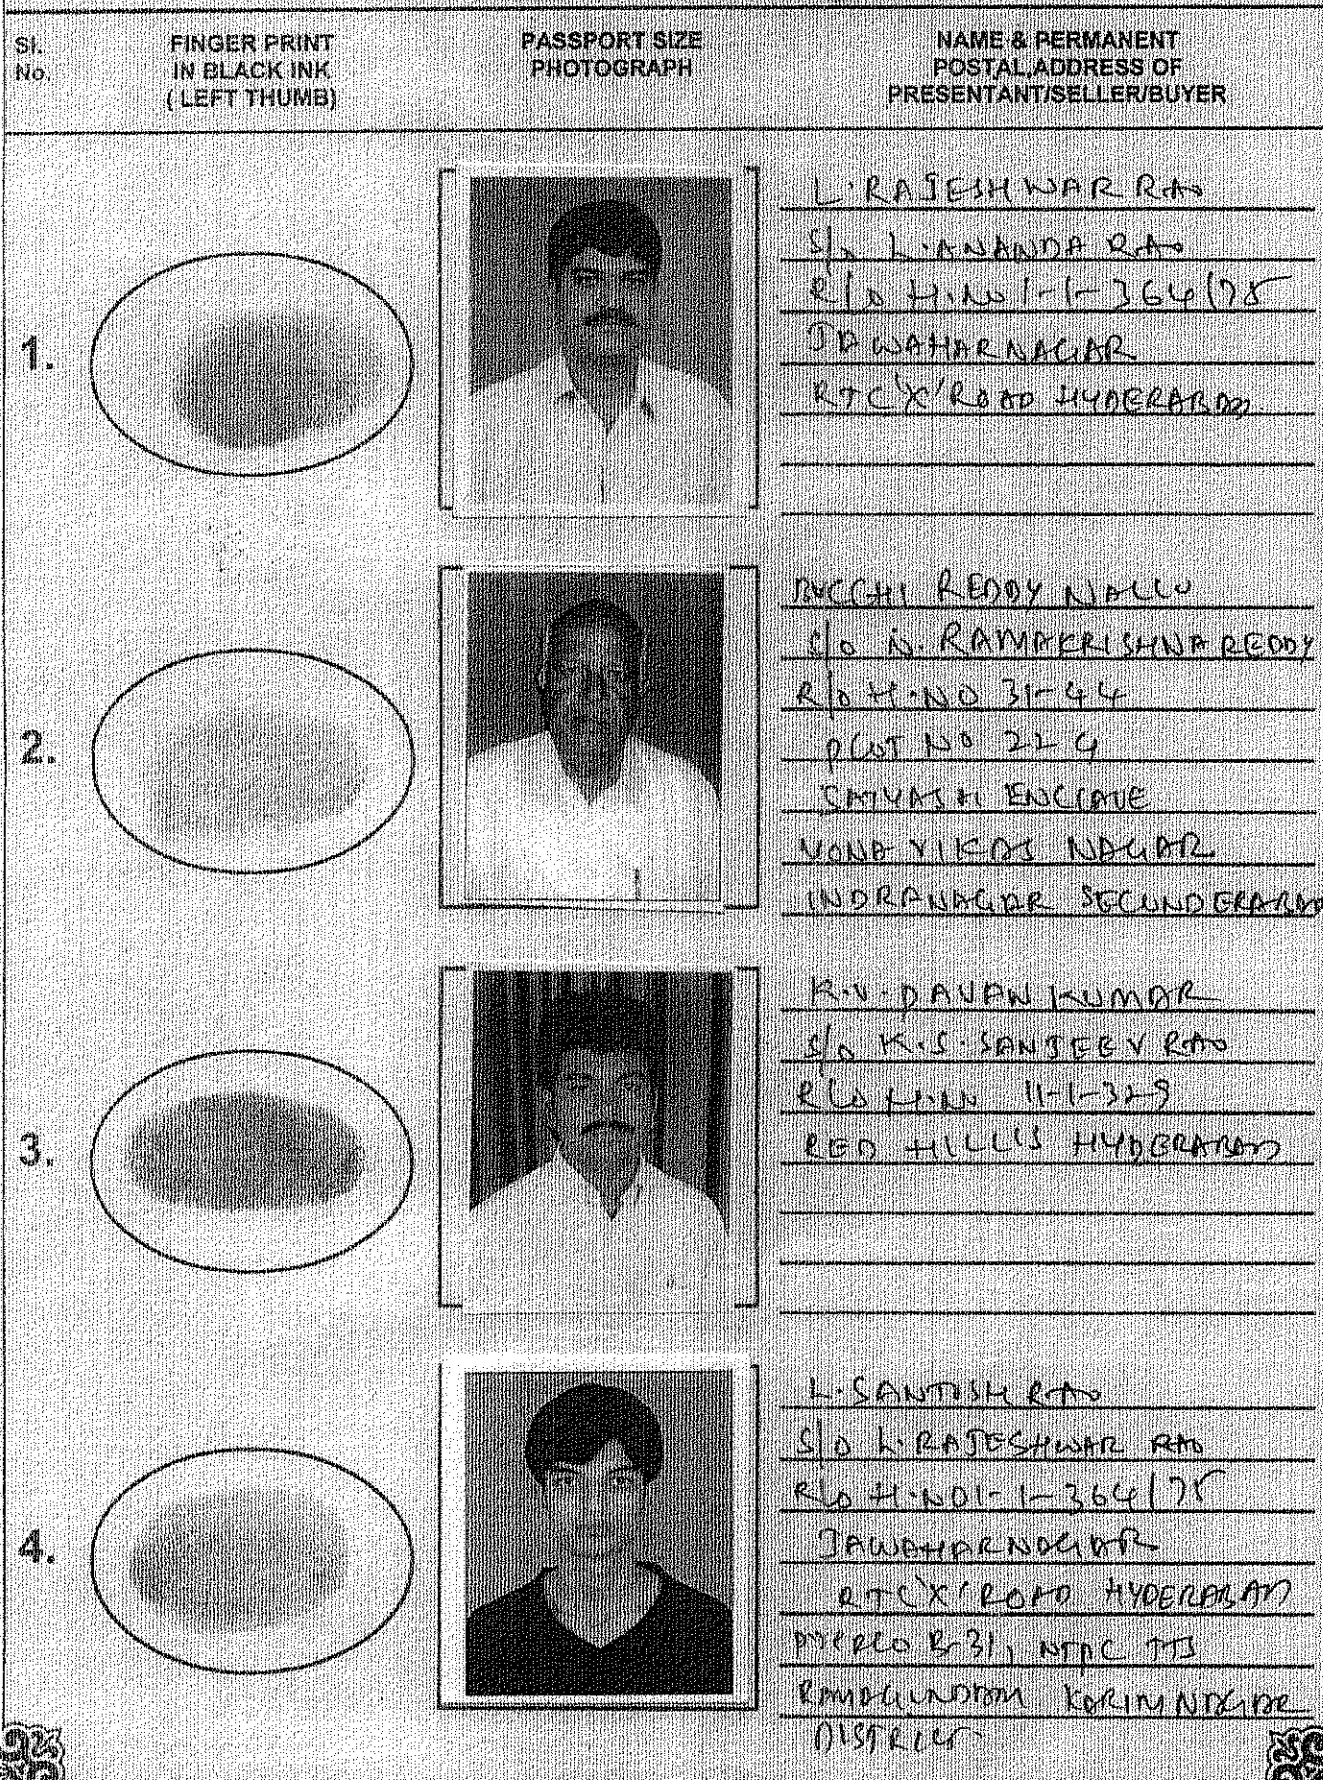 Sl.
No.
FINGER PRINT
IN BLACK INK
( LEFT THUMB)
PASSPORT SIZE
PHOTOGRAPH
NAME & PERMANENT
POSTAL ADDRESS OF
PRESENTANT/SELLER/BUYER
1.
L. RAJESHWAR RAO
S/o L. ANANDA RAO
R/o H.No 1-1-364/75
JAWAHARNAGAR
RTC 'X' ROAD HYDERABAD
2.
BUCCHI REDDY NALLU
S/o N. RAMAKRISHNA REDDY
R/o H.NO 31-44
PLOT NO 22
ENCLAVE
VIKAS NAGAR
INDRANAGAR SECUNDERABAD
3.
K.V. PAVAN KUMAR
S/o K.S. SANJEEV RAO
R/o H.No 11-1-329
RED HILLS HYDERABAD
4.
L. SANTOSH RAO
S/o L. RAJESHWAR RAO
R/o H.NO 1-1-364/75
JAWAHARNAGAR
RTC 'X' ROAD HYDERABAD
B-31, NTPC TTS
RAMAGUNDAM KARIMNAGAR
DISTRICT